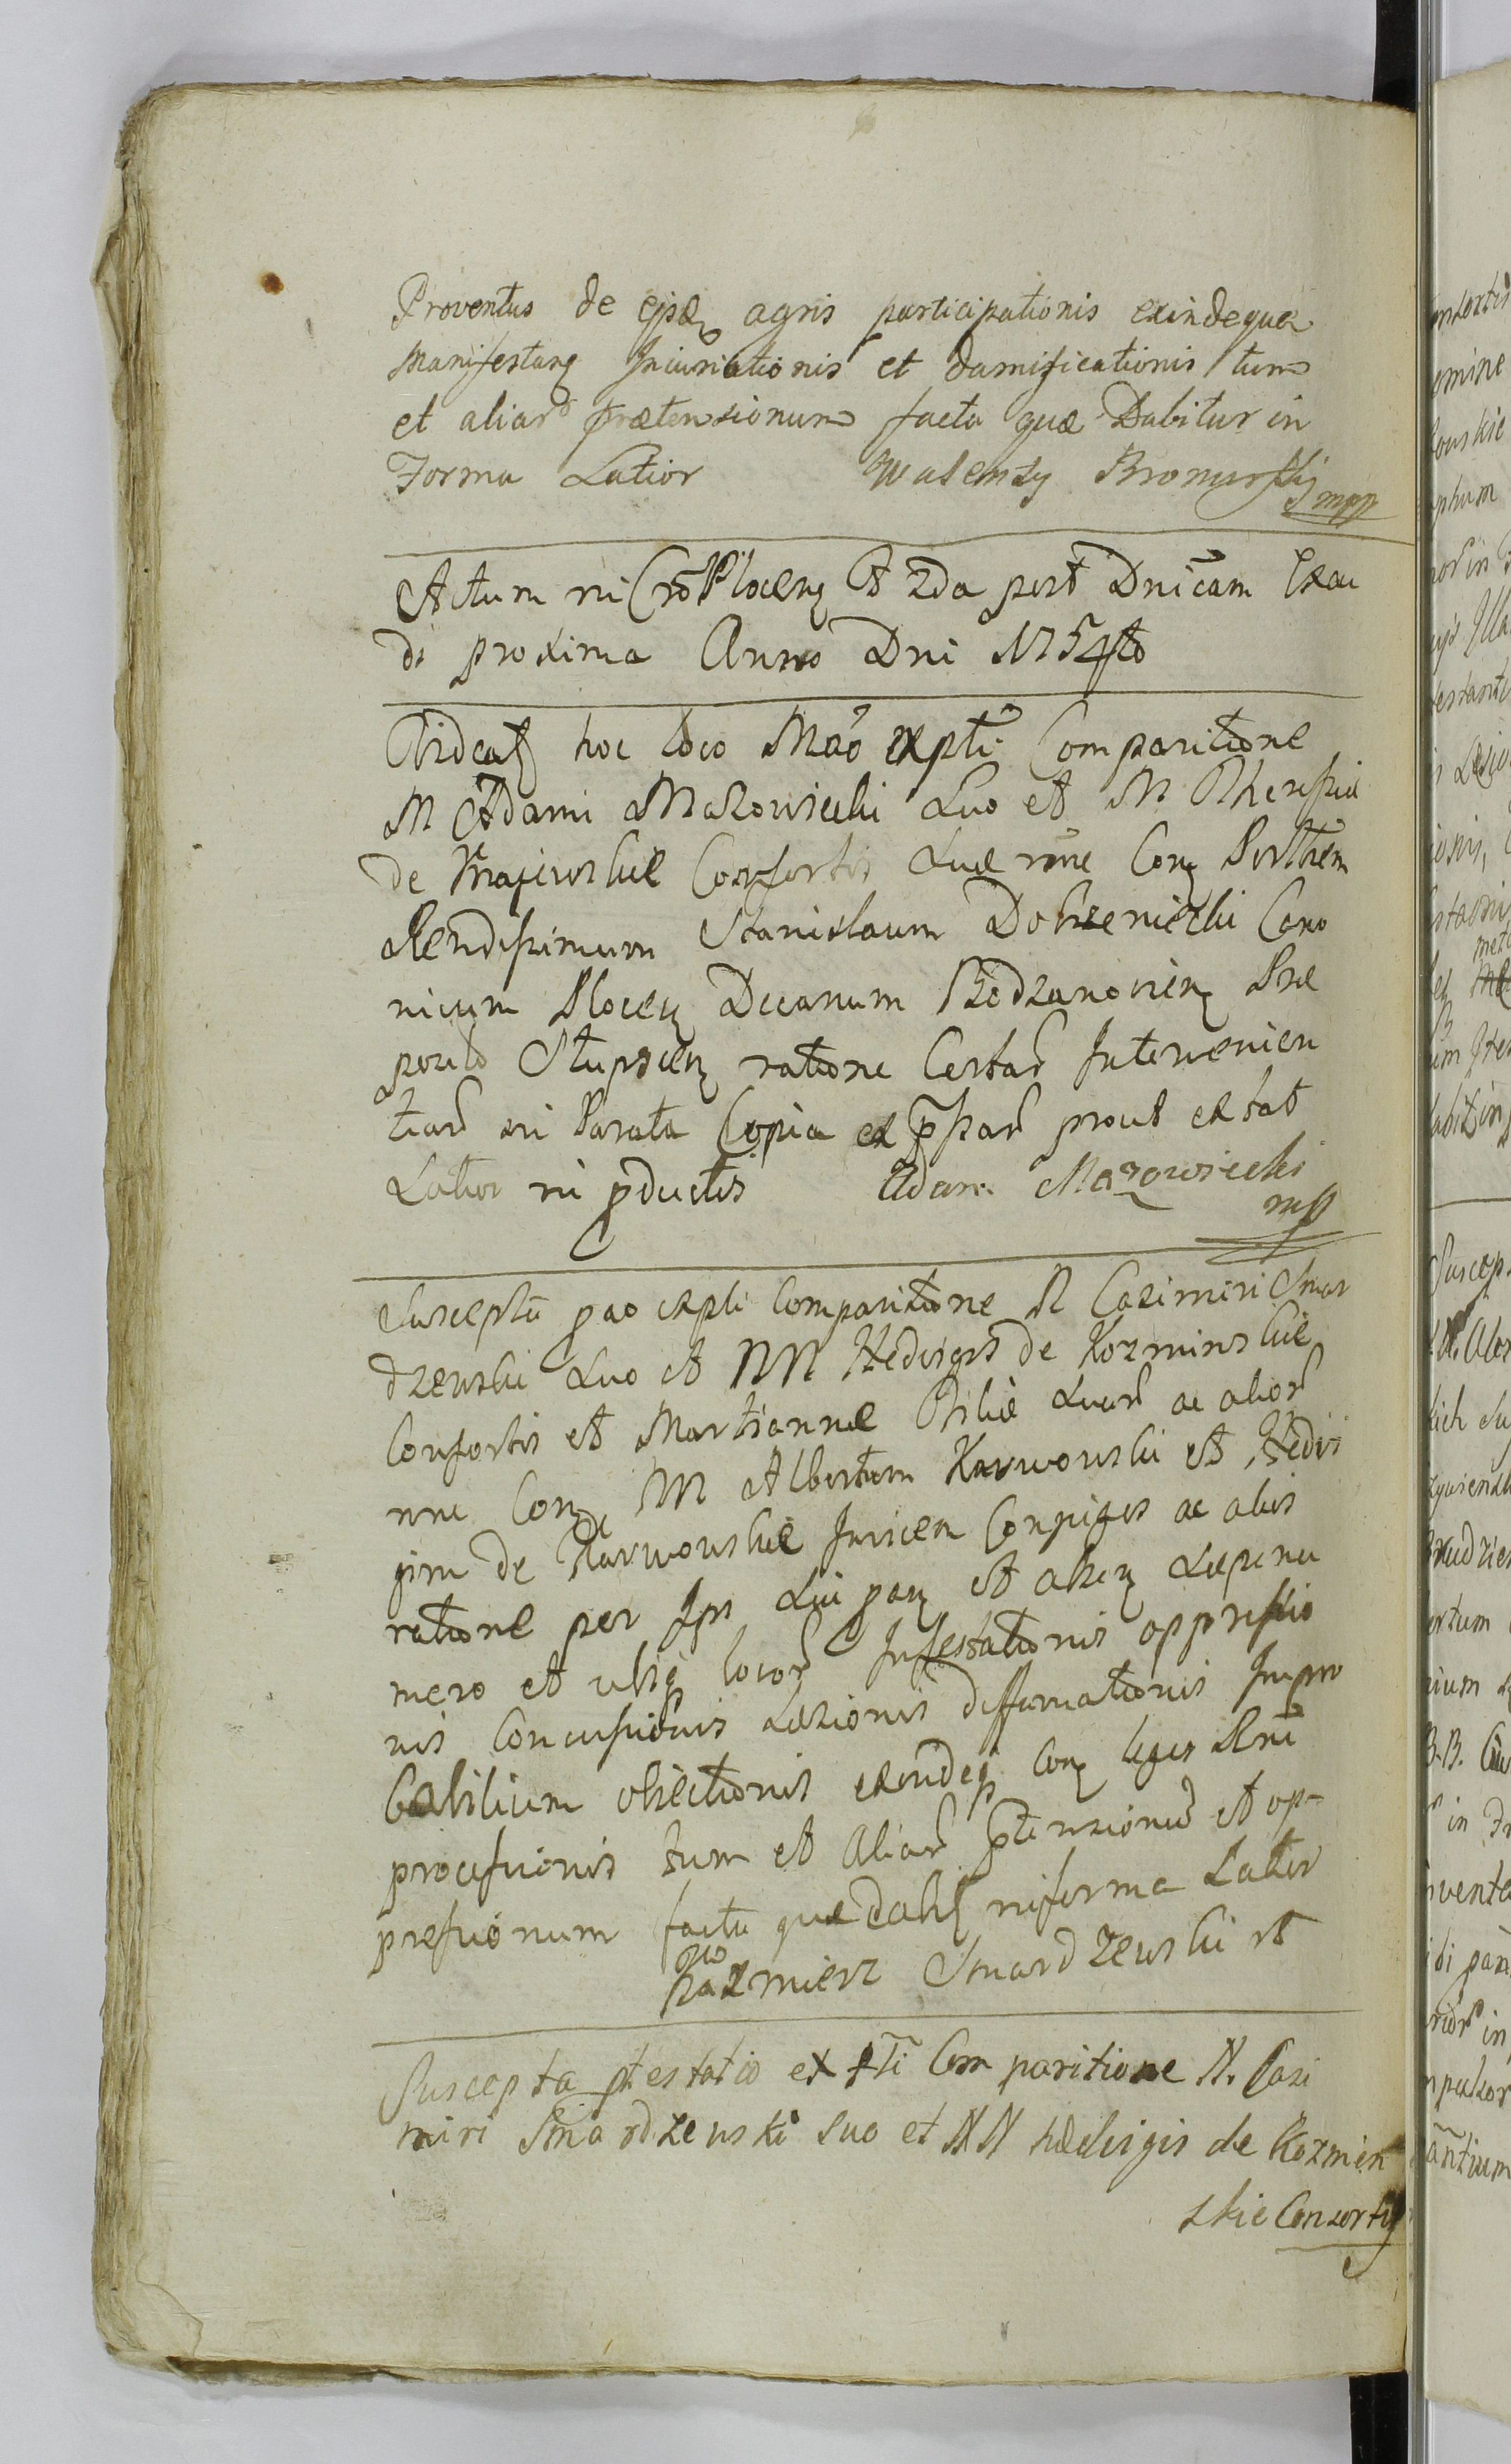 Proventus de ejsdem agris participationis exindeque
Manifestanq Iniuriationis et damificationis tum
et aliar prætensionum facta quæ Dabitur in
Forma Latior Walenty Bromirski mpp
Actum in Cro Plocen F 2da post Dnicam Exau
di proxima Anno Dni 1754to
Videatz hoc loco Mão expti Comparitione
M Adami Mazowiecki Suo et M Theresiæ
de Krajewskie Consortis Suæ nne Con Perillrem
Rendissimum Stanislaum Dobrzeniecki Cano
nicum Plocen Decanum Bodzanovien Præ
positũ Slupscien ratione Certar Intervenien
tiar in Parata Copia expssar prout extat
Latior in pductis Adam Mazowiecki
mp
Suscepta pao expti Comparitione N Casimiri Smar
dzewski Suo et NN Hedvigis de Kozminskie
Consortis et Martiannæ Filiæ Suar ac alior
nne Con NN Albertum Karwowski et Hedvi
gim de Karwowskie Invicem Conjuges ac alios
ratione per Ips Sui pam et
mero et ubiq locor Infestationis oppressio
nis Concussionis Læsionis diffamationis Impro
babilium obiectionis exindeq Con leges Rni
processionis tum et Aliar ptensionũ et op-
pressionum facta quæ dabitz in forma Latior
Kazmierz Smardzewski
Suscepta ptestatio ex pti Comparitione N. Casi
miri Smardzewski suo et NN hedvigis de Kozmin
skie Consortis